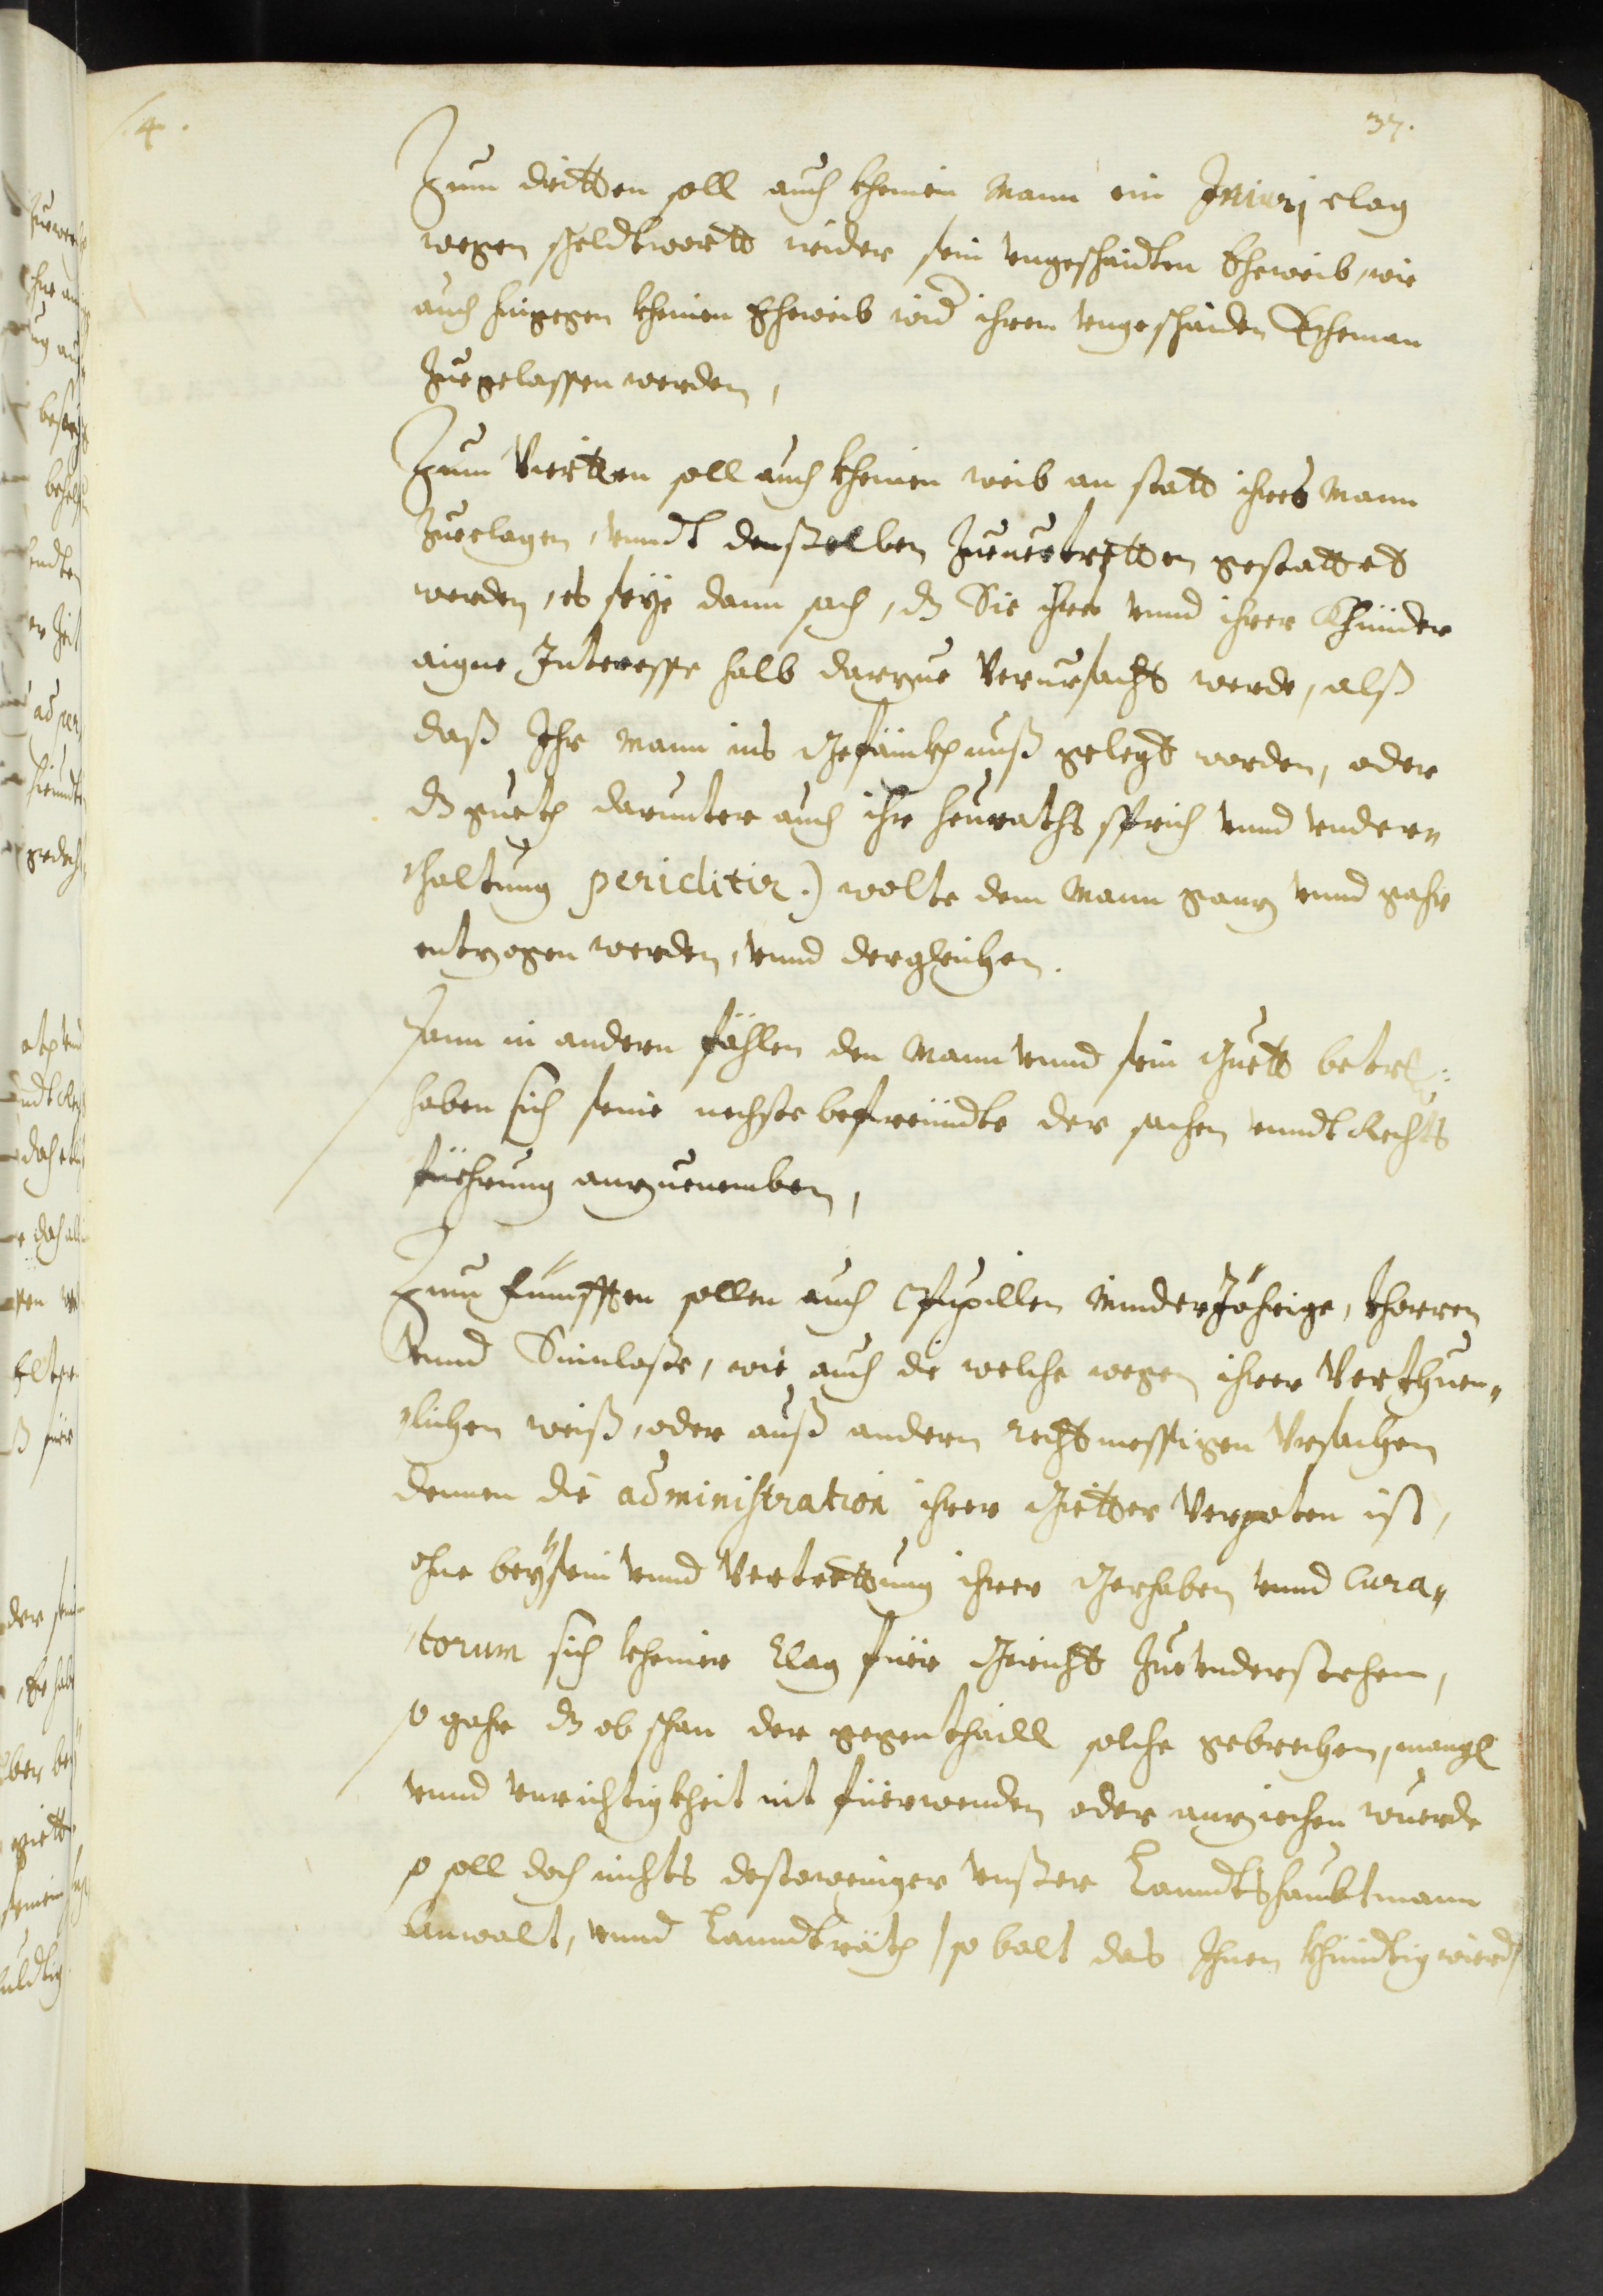 4.
37.
Zum dritten soll auch kheinen Mann ein Iniurj clag
wegen scheldtwortt wider sein vngeschaidten Eheweib, wie
auch hingegen kheinen Eheweib wid ihrem vngeschaiden Eheman
Zuegelassen werden,
Zum Viertten soll auch kheinen weib an statt ihres Mann
Zueclagen, vnndt denßelben Zueuertretten gestattet
werden, es seÿe dann sach, dz Sie ihrer vnnd ihrer Khünder
aigne Interesse halb darzue Verursacht werde, alß
daß Ihr Mann ins Gefänkhnuß gelegt worden, oder
dz gueth darunter auch ihr heuraths sprich vnnd vnder„
„haltung periclitir.) wolte dem Mann ganz vnnd gahr
entzogen werden, vnnd dergleichen.
Dann in andern fählen den Mann vnnd sein Guett betrl:
haben sich seine nechste befreündte der sachen vnndt Rechts
füehrung anzuenemben,
Zum Fünfften sollen auch Pupillen Minderjährige, thorren
vnnd Sinnloße, wie auch die welche wegen ihrer Verthuen„
„lichen weiß, oder auß andern rechtmessigen Vrsachen
dennen die administration ihrer Gietter Verpoten ist,
ohne beÿsein vnnd Vertrettung ihrer Gerhaben vnnd Cura„
„torum sich kheiner Clag füer Gericht Zue vnderstehen,
so gahr dz ob schon der gegenthaill solche gebrechen, mangl
vnnd vnrichtigkheit nit füerwenden oder anziechen wuerde
so soll doch nichts destoweniger vnßer Lanndtshaubtmann
Anwalt, vnnd Lanndträth / so balt das Ihnen khündtig wierd /